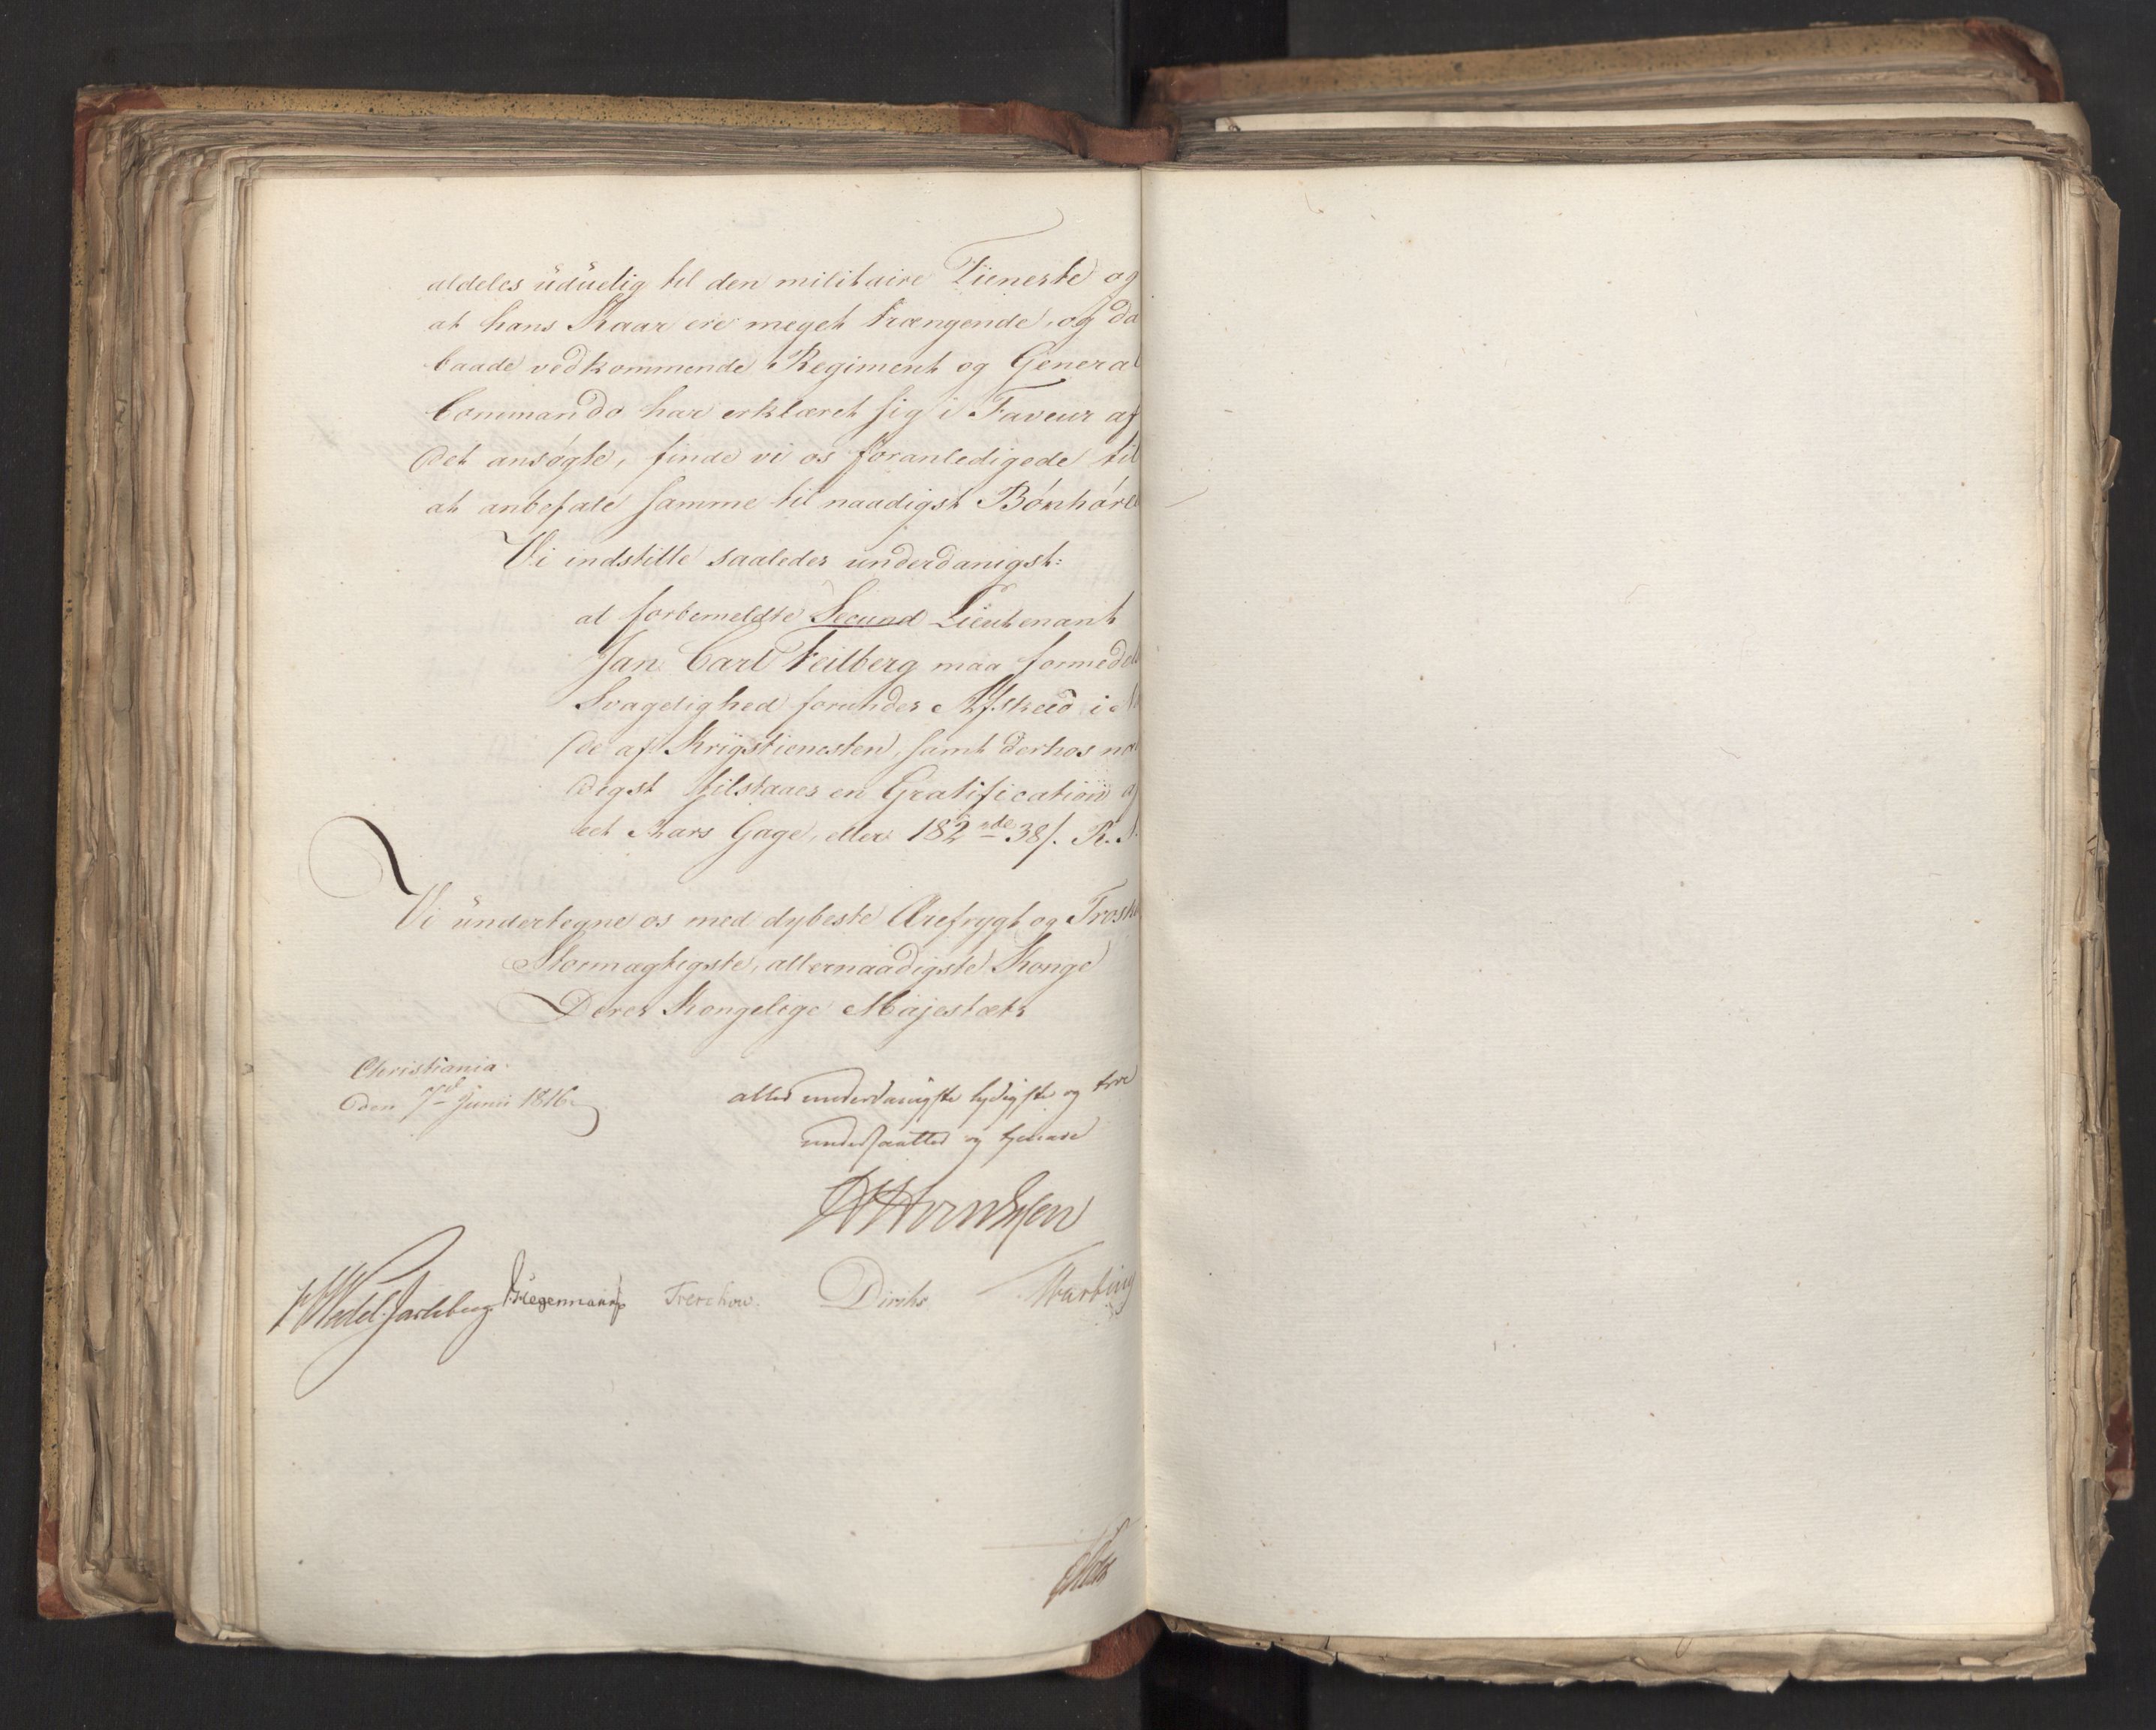 aldeles uduelig til den militaire Tieneste og
at hans Kaar ere meget trængende, og da
baade vedkommende Regiment og General
Commando har erklæret sig i Faveur af
det ansøgte, finde vi os foranledigede til
at anbefale samme til naadigst Bønhøre
Vi indstille saaledes underdanigst:
at forbemeldte Secund Lieutenant
Jan Carl Feilberg maa formedel
Svagelighed forundes Afskeed i
de af Krigstienesten, samt derhos naa
digst tilstaaes en Gratification af
eet Aars Gage, eller 182 rdlr 38 s. R. S.
Vi undertegne os med dybeste Ærefrygt og Trosk
Stormægtigste, allernaadigste Konge
Deres Kongelige Majestæts
Christiania
den 7de Junii 1816.
allerunderdanigste lydigste og troe
undersaatter og tjenere
Wedel Jarlsberg Hegermann Treschow Diriks